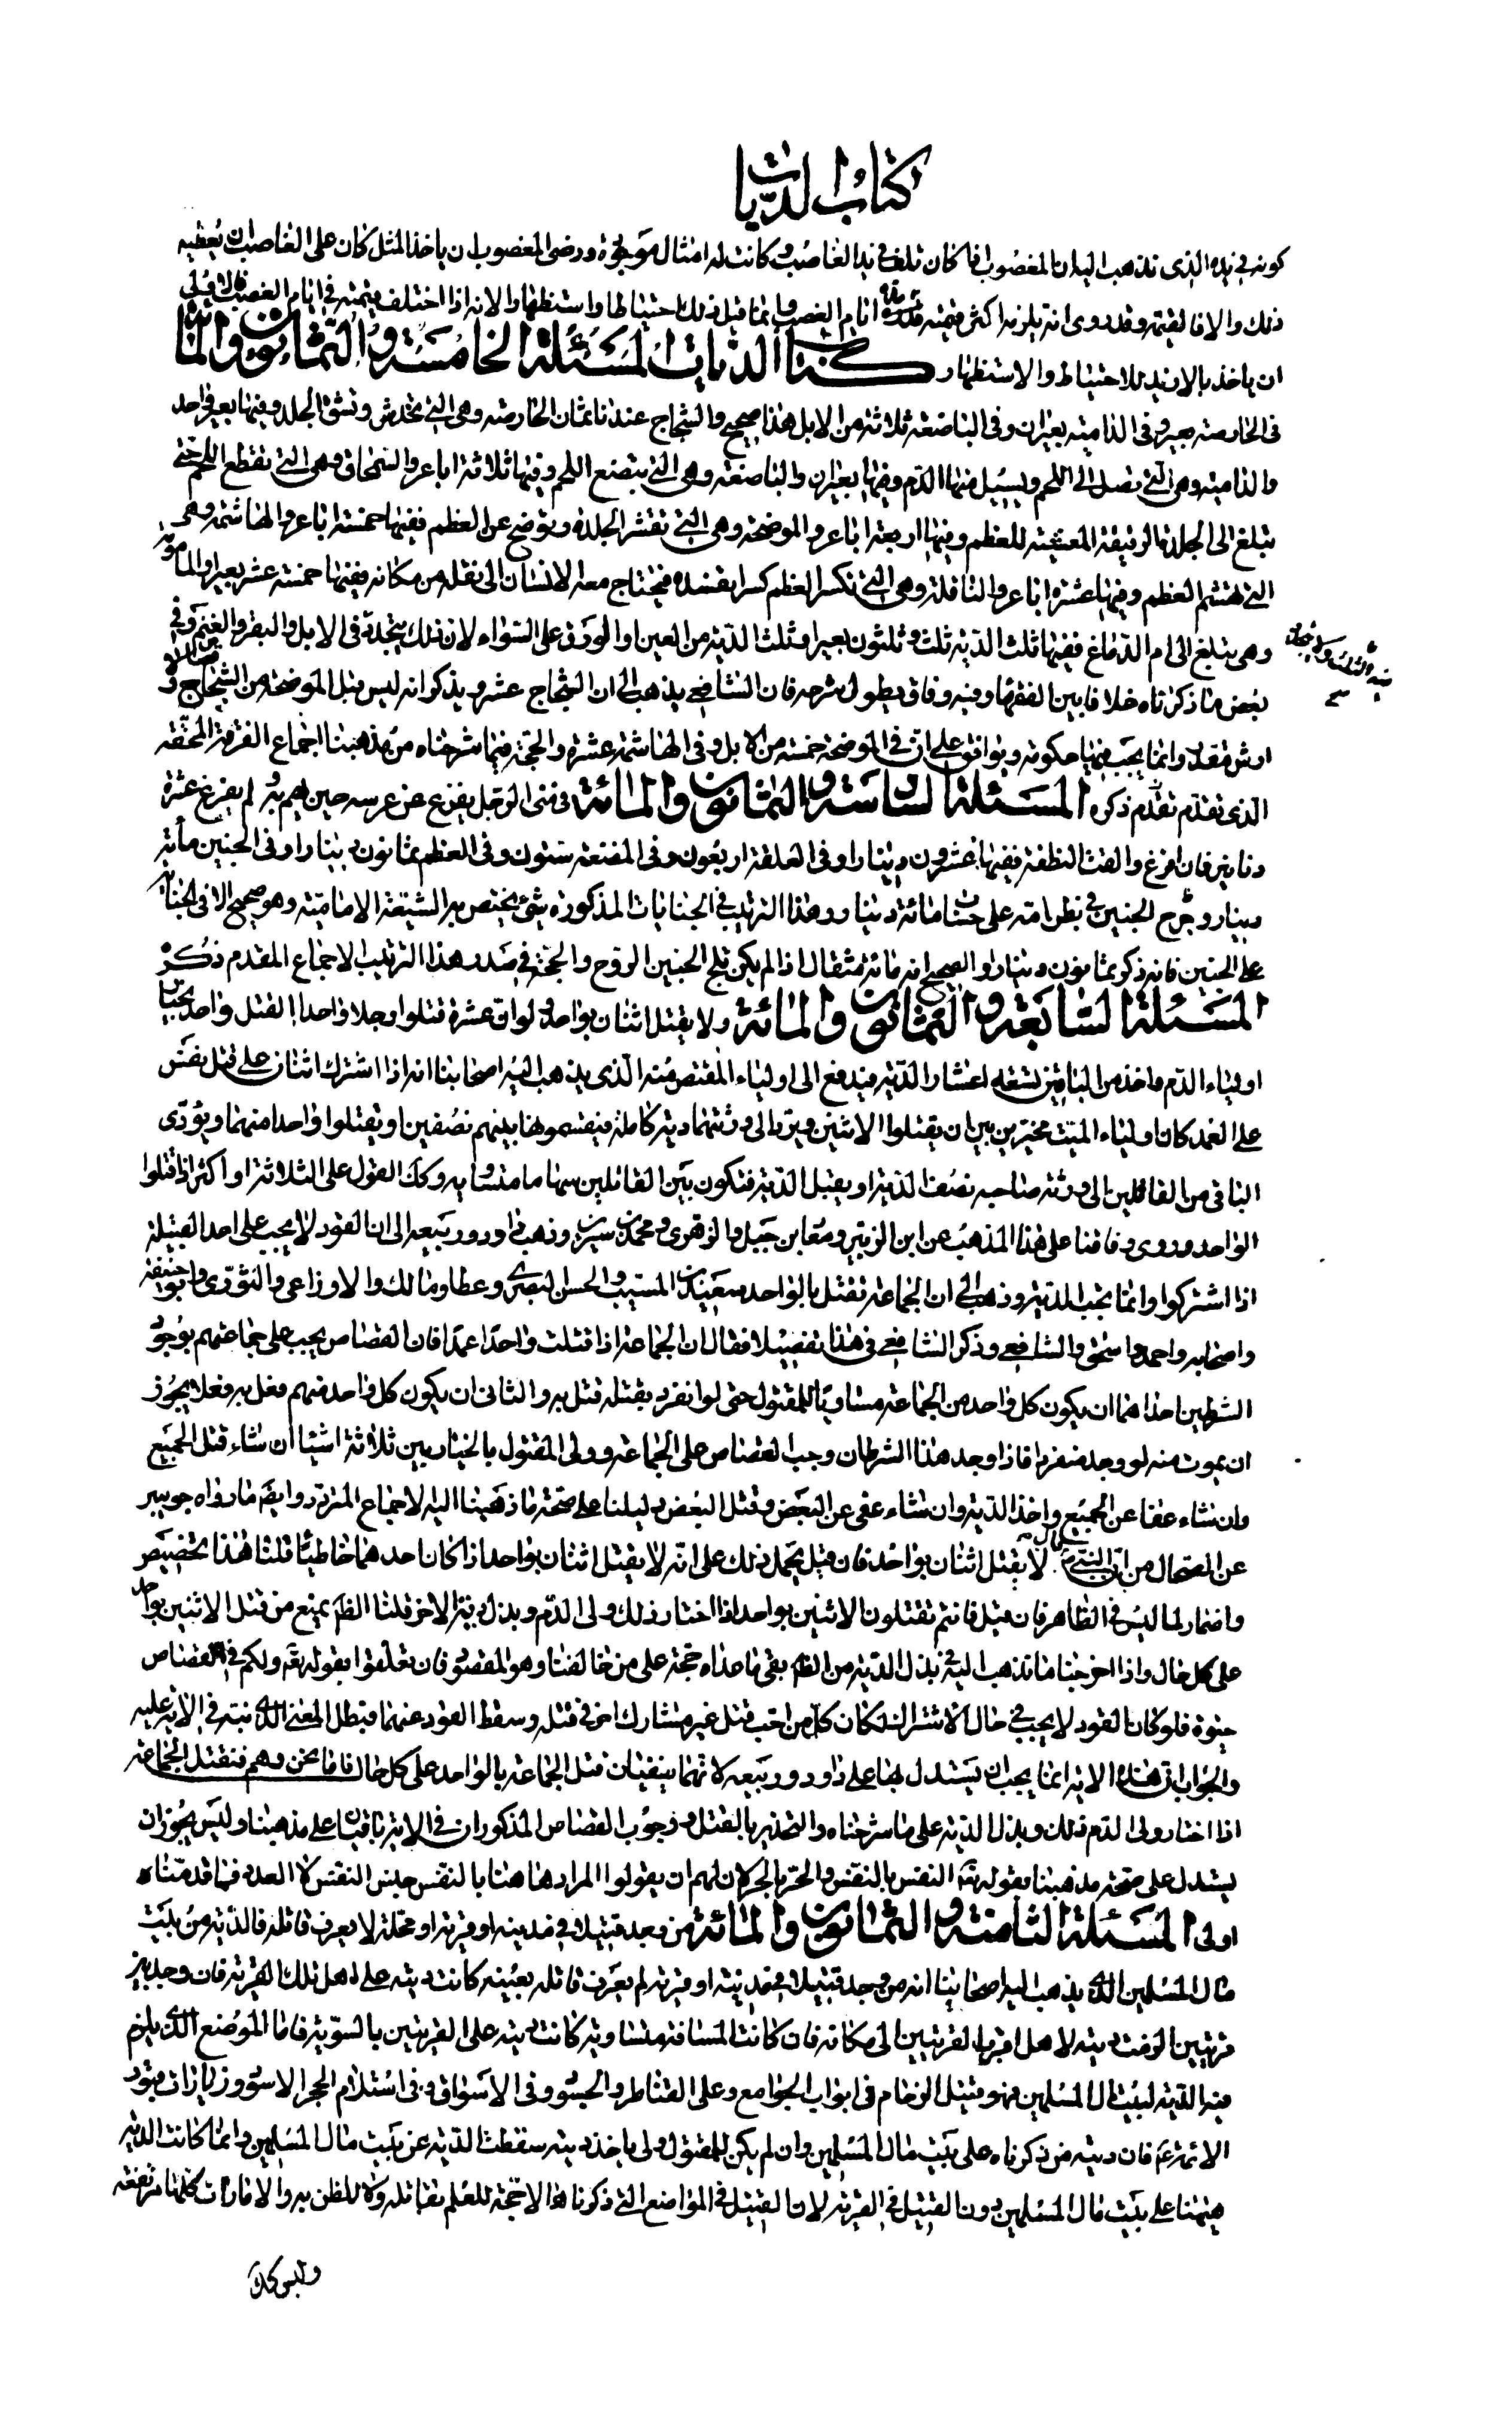 كتاب الديات
كونه في يده الذى نذهب اليه ان المغصوب اذا كان تلف في يد الغاصب وكانت له امثال موجودة ورضى المغصوب ان ياخذ المثل كان على الغاصب ان يعطيه
ذلك والا فالقيمة وقد روى انه يلزمه اكثر قيمته مدة ايام الغصب وانما قيل ذلك احتياطا واستظهارا لانه اذا اختلف قيمته في ايام الغصب فالاولى
ان ياخذ بالازيد للاحتياط والاستظهار كتاب الديات المسئلة الخامسة والثمانون والمائة
في الخارصة بعير وفى الدامية بعيران وفى الباضعة ثلاثة من الابل هذا صحيح والشجاج عندنا ثمان الخارصة وهى التي تخدش وتشق الجلد وفيها بعير واحد
والدامية وهى التي تصل الى اللحم ويسيل منها الدم وفيها بعيران والباضعة وهى التي تبضع اللحم وفيها ثلاثة اباعر والسمحاق وهى التي تقطع اللحم حتى
تبلغ الى الجلدة الرقيقة المغشية للعظم وفيها اربعة اباعر والموضحة وهى التي تقشر الجلدة وتوضح عن العظم ففيها خمسة اباعر والهاشمة وهى
التي تهشم العظم وفيها عشرة اباعر والناقلة وهى التي تكسر العظم كسرا يفسده فيحتاج معه الانسان الى نقله من مكانه ففيها خمسة عشر بعيرا والمامومة
وهى تبلغ الى ام الدماغ ففيها ثلث الدية ثلث وثلثون بعيرا وثلث الدية من العين او الورق على السواء لان ذلك يتحدد في الابل والبقر والغنم وفى
بعض ما ذكرناه خلافا بين الفقهاء وفيه وفاق يطول شرحه فان الشافعي يذهب الى ان الشجاج عشر ويذكر انه ليس قبل الموضحة من الشجاج
ارش مقدر وانما يجب فيها حكومة ويوافق على ان في الموضحة خمسة من الابل وفى الهاشمة عشرة والحجة فيما شرحناه من مذهبنا اجماع الفرقة المحقة
الذى تقدم ذكره المسئلة السادسة والثمانون والمائة في منى الرجل يفزع عن عرسه حين لم يفرغ عشرة
دنانير فان افرغ والقت النطفة ففيها عشرون دينارا وفى العلقة اربعون وفى المضغة ستون وفى العظم ثمانون دينارا وفى الجنين مائة
دينار وجرح الجنين في بطن امه على حساب مائة دينار وهذا الترتيب في الجنايات المذكورة شئ يختص به الشيعة الامامية وهو صحيح الا فى الجناية
على الجنين فانه ذكر ثمانون دينارا والصحيح انه مائة مثقال اذا لم يكن تلج الجنين الروح والحجة في صدر هذا الترتيب الاجماع المقدم ذكره
المسئلة السابعة والثمانون والمائة ولا يقتل اثنان بواحد ولو ان عشرة قتلوا رجلا واحدا لقتل واحد
اولياء الدم واخذ من الباقين تسعة اعشار الدية فيدفع الى اولياء المقتص منه الذى يذهب اليه اصحابنا انه اذا اشترك اثنان على قتل نفس
على العمد كان اولياء الميت مخيرين بين ان يقتلوا الاثنين ويردا لى ورثتهما دية كاملة فيقسموها بينهم نصفين او يقتلوا واحدا منهما ويؤدى
الباقى من القاتلين الى ورثة صاحبه نصف الدية او يقبل الدية فتكون بين القاتلين سهاما متساوية وكك القول على الثلاثة او اكثر اذا قتلوا
الواحد وروى وفاقنا على هذا المذهب عن ابن الزبير ومعاذ بن جبل والزهرى ومحمد بن سيرين وذهب داود وربيعة الى ان القود لا يجب على احد القبيلة
اذا اشتركوا وانما يجب الدية وذهب الى ان الجماعة تقتل بالواحد سعيد بن المسيب والحسن البصري وعطا ومالك والاوزاعى والثوري وابو حنيفة
واصحابه واحمد واسحق والشافعي وذكر الشافعي في هذا تفصيلا فقال ان الجماعة اذا قتلت واحدا عمدا فان القصاص يجب على جماعتهم بوجود
الشرطين احداهما ان يكون كل واحد من الجماعة مساويا للمقتول حتى لو انفرد بقتله قتل به والثانى ان يكون كل واحد منهم فعل به فعلا يجوز
ان يموت منه لو وجد منفردا فاذا وجد هذا الشرطان وجب القصاص على الجماعة وولى المقتول بالخيار بين ثلاثة اشياء ان شاء قتل الجميع
وان شاء عفا عن الجميع واخذ الدية وان شاء عفى عن البعض وقتل البعض دليلنا على صحة ما ذهبنا اليه الاجماع المتردد وايضا ما رواه جويبر
عن الضحاك من ان النبي قال لا يقتل اثنان بواحد فان قيل يحمل ذلك على انه لا يقتل اثنان بواحد اذا كان احدهما خاطيئا قلنا هذا تخصيص
واضمار لما ليس في الظاهر فان قيل فانتم تقتلون الاثنين بواحد اذا اختار ذلك ولى الدم وبذل دية الاخر قلنا الظ يمنع من قتل الاثنين بواحد
على كل حال واذا اخرجنا ما نذهب اليه في بذل الدية من الظ بقى ما عداه حجة على من خالفنا وهو المقصود فان تعلقوا بقوله تعه ولكم في القصاص
حيوة فلو كان القود لا يجب في حال الاشتراك لكان كل من احب قتل غيره شارك اخر في قتله وسقط القود عنهما فبطل المعنى الذى نبه في الاية عليه
والجواب ان هذه الاية انما يجب ان يستدل بها على داود وربيعة لانهما ينفيان قتل الجماعة بالواحد على كل حال فاما نحن وهم فنقتل الجماعة
اذا اختار ولى الدم ذلك وبذل الدية على ما شرحناه والتحذير بالقتل ووجوب القصاص المذكوران في الاية باقيان على مذهبنا وليس يجوز ان
يستدل على صحة مذهبنا بقوله تعه النفس بالنفس والحر بالحر لان لهم ان يقولوا المراد هاهنا بالنفس جنس النفس لا العدد فما قدمناه
اولى المسئلة الثامنة والثمانون والمائة من وجد قتيلا في مدينه او قرية او محلة لا يعرف قاتله فالدية من بيت
مال المسلمين الذى يذهب اليه اصحابنا انه من وجد قتيلا في مدينة او قرية لم يعرف قاتله بعينه كانت ديته على اهل تلك القرية فان وجد بين
قريتين الزمت ديته لاهل اقرب القريتين الى مكانه فان كانت المسافة متساوية كانت ديته على القريتين بالسوية فاما الموضع الذى يلزم
فيه الدية لبيت مال المسلمين فهو قتيل الزحام في ابواب الجوامع وعلى القناطر والجسور وفى الاسواق وفى استلام الحجر الاسود وزيارات قبور
الائمة ع فان دية من ذكرناه على بيت مال المسلمين وان لم يكن للمقتول ولى ياخذ ديته سقطت الدية عن بيت مال المسلمين وانما كانت الدية
هيهنا على بيت مال المسلمين دون القتيل في القرية لان القتيل في المواضع التي ذكرناها لا حجة للعلم بقاتله ولا للظن به والامارات كلها مرتفعة
وليس كك